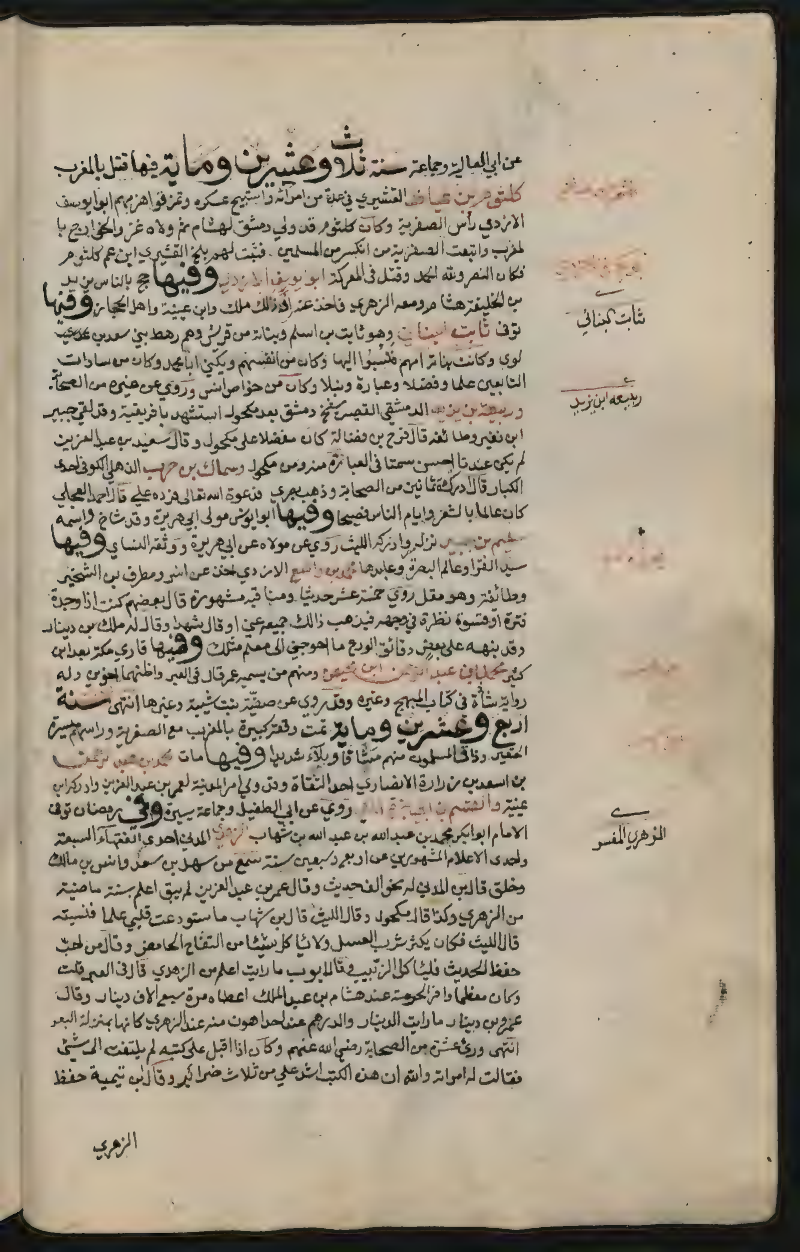 عن ابي العالية وجماعة سنة ثلاث وعشرين وماية فيها قتل بالمغرب
كلثوم بن عياض القشيري في عدة من امرائه واستبيح عسكره وتمزقوا هزمهم ابو يوسف
الازدي راس الصفرية وكان كلثوم قد ولي دمشق لهشام ثم ولاه غزو الخوارج با
لمغرب واتبعت الصفرية من انكسر من المسلمين فثبت لهم بلج القشيري ابن عم كلثوم
فكان النصر ولله الحمد وقتل في المعركة ابو يوسف الازدي وفيها حج بالناس يزيد
بن الخليفة هشام ومعه الزهري فاخذ عنه اذ ذالك ملك وابن عيينة واهل الحجاز وفيها
توفي ثابت البناني وهو ثابت بن اسلم وبنانة من قريش وهم رهط بني سعد بن
لوي وكانت بنانة امهم فنسبوا اليها وكان من انفسهم ويكنى ابا محمد وكان من سادات
التابعين علما وفضلا وعبادة ونبلا وكان من خواص انس وروي عن غيره من الصحابة
وربيعة بن يزيد الدمشقي القصير شيخ دمشق بعد مكحول استشهد بافريقية وقد لقي جبير
ابن نفير وطائفة قال فرج بن فضالة كان مفضلا على مكحول وقال سعيد بن عبد العزيز
لم يكن عندنا احسن سمتا في العبادة منه ومن مكحول وسماك بن حرب الذهلي الكوفي احد
الكبار قال ادركت ثمانين من الصحابة وذهب بصري فدعوة الله تعالى فرده علي قال احمد العجلي
كان عالما بالشعر وايام الناس فصيحا وفيها ابو يونس مولى ابي هريرة وقد شاخ واسمه
سليم بن جبير نزل وادركه الليث روي عن مولاه عن ابي هريرة ووثقه النساي وفيها
سيد القرا وعالم البصرة وعابدها محمد بن واسع الازدي اخذ عن انس ومطرف بن الشخير
وطائفة وهو مقل روي خمسة عشر حديثا ومناقبه مشهورة قال بعضهم كنت اذا وجدة
فترة او قسوة نظرة في وجهه فيذهب ذالك جميعه عني او قال شهرا وقال له ملك بن دينار
وقد نبهه على بعض دقائق الورع ما احوجني الى معلم مثلك وفيها قاري مكة بعد ابن
كثير محمد بن عبد الرحمن ابن محيصن ومنهم من يسميه عمر قال في العبر واظنهما اخوين وله
رواية شاذة في كتاب المبهج وغيره وقد روي عن صفية بنت شيبة وغيرها انتهى سنة
اربع وعشرين وماية تمت وقعة كبيرة بالمغرب مع الصفرية وراسهم ميسرة
الحقير وذاق المسلمون منهم مشاقا وبلاء شديدا وفيها مات محمد بن عبد الرحمن
بن اسعد بن زرارة الانصاري احد الثقاة وقد ولي امر المدينة لعمر بن عبد العزيز وادركه ابن
عيينة والقسم بن ابي بزة المكي روي عن ابي الطفيل وجماعة يسيرة وفي رمضان توفي
الامام ابو بكر محمد بن عبد الله بن عبد الله بن شهاب الزهري المدني احد الفقهاء السبعة
واحد الاعلام المشهورين عن اربع وسبعين سنة سمع من سهل بن سعد وانس بن مالك
وخلق قال بن المديني له نحو الف حديث وقال عمر بن عبد العزيز لم يبق اعلم بسنة ماضية
من الزهري وكذا قال مكحول وقال الليث قال بن شهاب ما استودعت قلبي علما فنسيته
قال الليث فكان يكثر شرب العسل ولا ياكل شيئا من التفاح الحامض وقال من احب
حفظ الحديث فلياكل الزبيب قال ايوب ما رايت اعلم من الزهري قال في العبر قلت
وكان معظما وافر الحرمة عند هشام بن عبد الملك اعطاه مرة سبع الاف دينار وقال
عمرو بن دينار ما رايت الدينار والدرهم عند احد اهون منه عند الزهري كانها بمنزلة البعر
انتهى وراى عشرة من الصحابة رضي الله عنهم وكان اذا اقبل على كتبه لم يلتفت الى شي
فقالت له امراته والله ان هذه الكتب اشد علي من ثلاث ضرائر وقال بن تيمية حفظ
الزهري
ثابت البناني
ربيعه ابن يزيد
الزهري المفسر